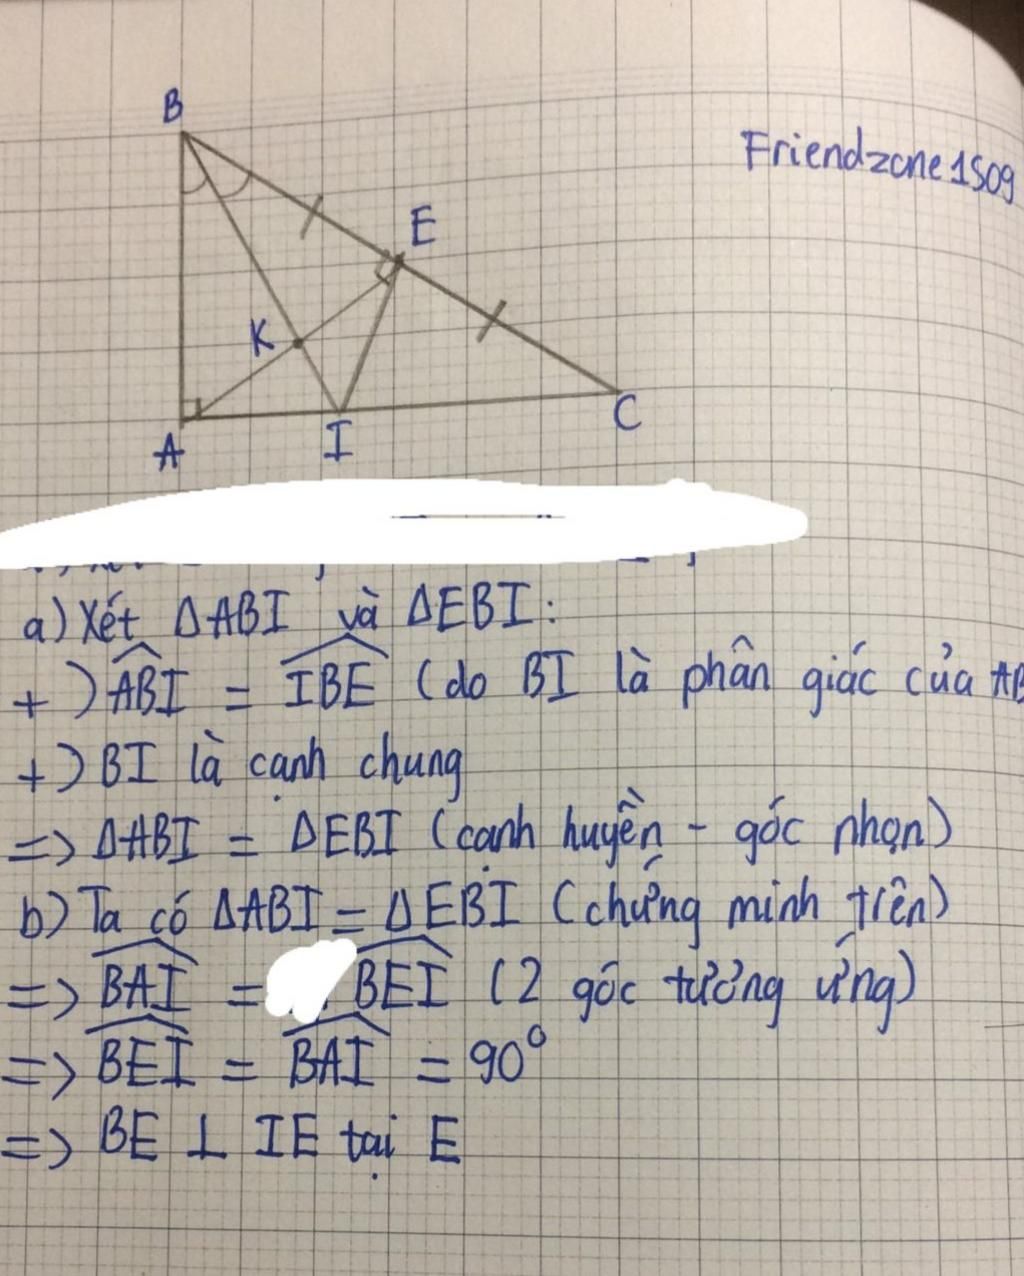 B
Friendzone1509
E
K
A
I
C
a) Xét ΔABI và ΔEBI:
+) ABI = IBE (do BI là phân giác của AB
+) BI là cạnh chung
=> ΔABI = ΔEBI (cạnh huyền - góc nhọn)
b) Ta có ΔABI = ΔEBI (chứng minh trên)
=> BAI = BEI (2 góc tương ứng)
=> BEI = BAI = 90°
=> BE ⊥ IE tại E